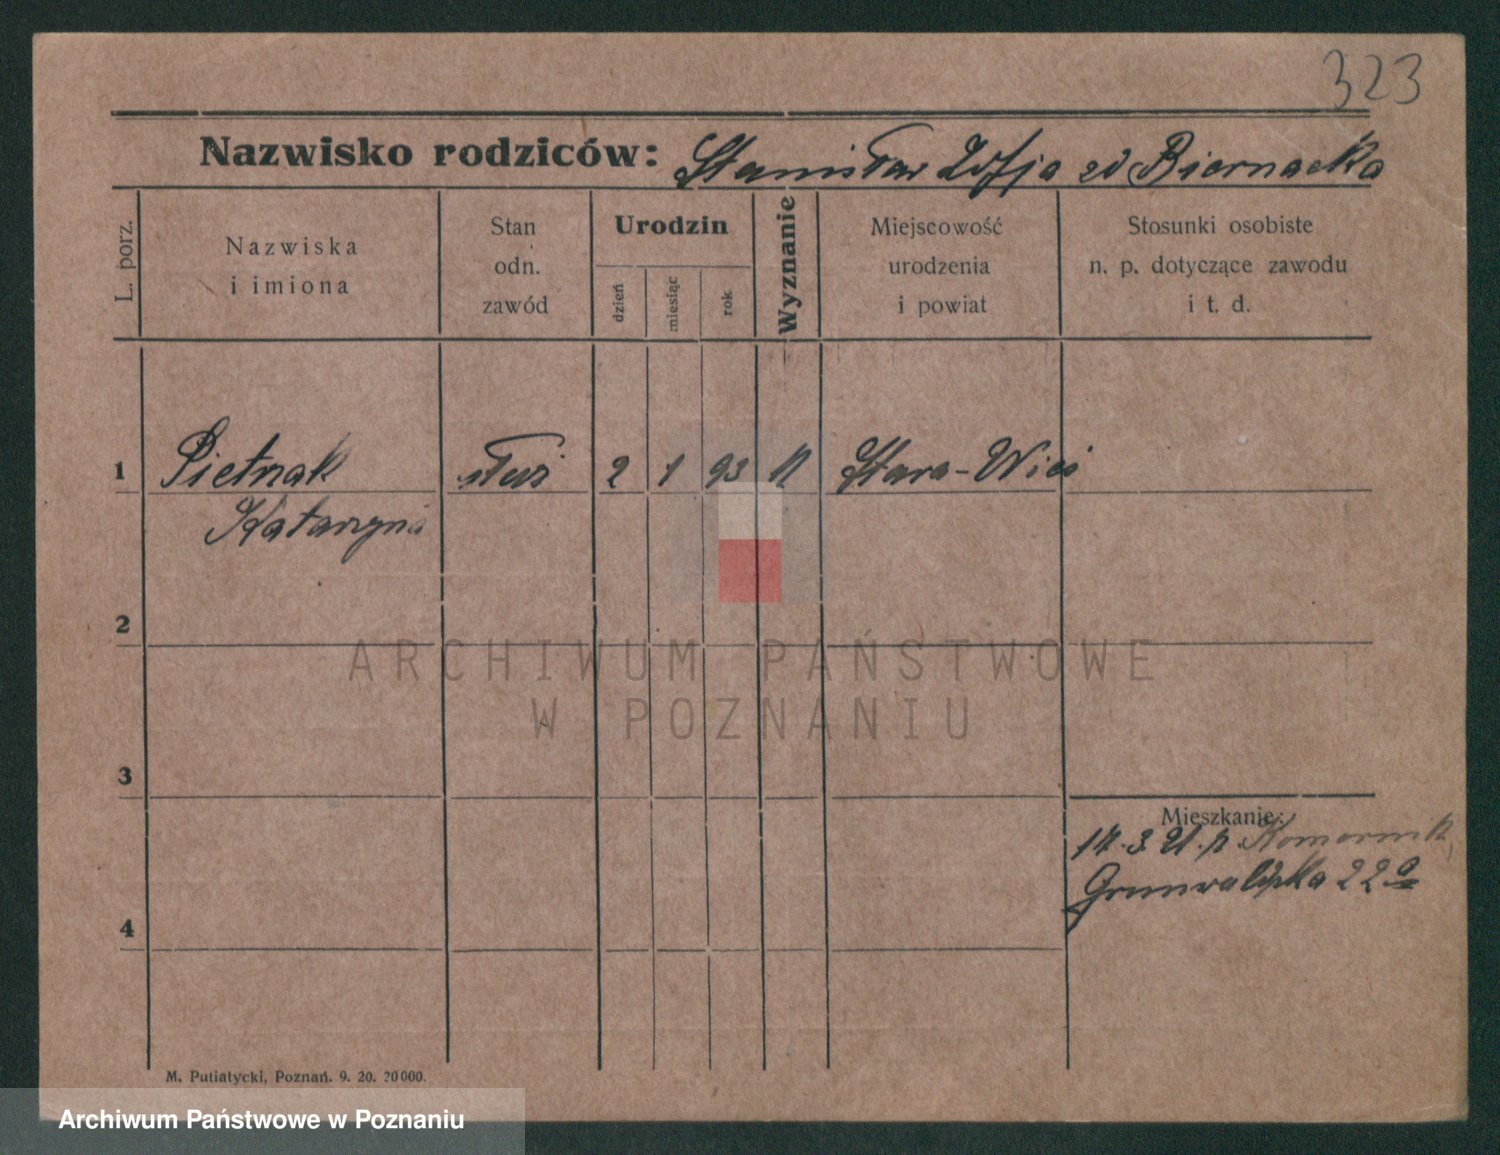 323
Nazwisko rodziców: Stanisław Zofja zd Biernacka
L. porz.
Nazwiska
i imiona
Stan
odn.
zawód
Urodzin
dzień
miesiąc
rok
Wyznanie
Miejscowość
urodzenia
i powiat
Stosunki osobiste
n. p. dotyczące zawodu
i t. d.
1 Pietrzak służ 2 1 93 K Stara-Wieś
Katarzyna
2
ARCHIWUM PAŃSTWOWE
W POZNANIU
3
Mieszkanie:
17.3.21. p.
Grunwaldzka 22a
4
M. Putiatycki, Poznań. 9. 20. 20000.
Archiwum Państwowe w Poznaniu